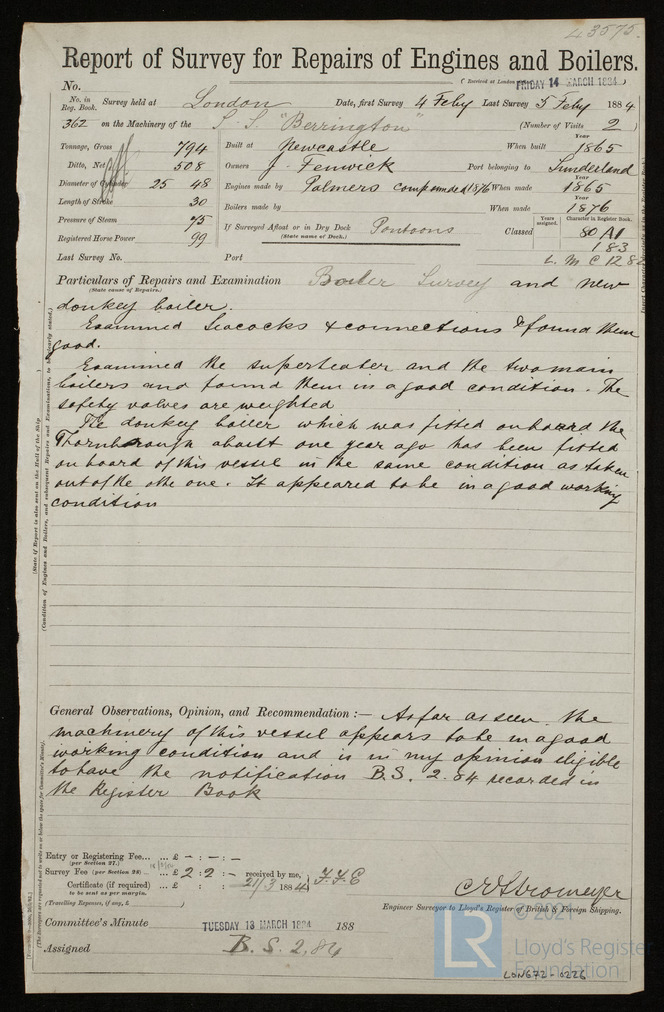 43575.
Report of Survey for Repairs of Engines and Boilers.
No. (Received at London FRIDAY 14 MARCH 1884)
No. in Reg. Book. Survey held at London Date, first Survey 4 Feby Last Survey 5 Feby 1884
362 on the Machinery of the S.S. "Berrington" (Number of Visits 2)
Tonnage, Gross 794 Built at Newcastle When built Year 1865
Ditto, Net 508 Owners J. Fenwick Port belonging to Sunderland
Diameter of Cylinder 25 48 Engines made by Palmers compounded 1876 When made Year 1865
Length of Stroke 30 Boilers made by When made Year 1876
Pressure of Steam 75 If Surveyed Afloat or in Dry Dock Pontoons Classed Years assigned. Character in Register Book. 80 A1
(State name of Dock.)
Registered Horse Power 99 1.83
Last Survey No. Port L.M.C 12.82
Particulars of Repairs and Examination Boiler Survey and new
(State cause of Repairs.)
donkey boiler.
Examined Seacocks & connections & found them
good.
Examined the superheater and the two main
boilers and found them in a good condition. The
safety valves are weighted
The donkey boiler which was fitted on board the
Thornborough about one year ago has been fitted
on board of this vessel in the same condition as taken
out of the othe one. It appeared to be in a good working
condition
General Observations, Opinion, and Recommendation :— As far as seen the
machinery of this vessel appears to be in a good
working condition and is in my opinion eligible
to have the notification B.S. 2.84 recorded in
the Register Book
Entry or Registering Fee... ... £ - : - : -
(per Section 27.)
Survey Fee (per Section 28) ... £ 2 : 2 : - received by me,
Certificate (if required) ... £ : : 21/3 1884
to be sent as per margin.
(Travelling Expenses, if any, £ )
Engineer Surveyor to Lloyd's Register of British & Foreign Shipping.
Committee's Minute TUESDAY 18 MARCH 1884 188
Assigned B.S. 2.84
(State if Report is also sent on the Hull of the Ship
(Condition of Engines and Boilers, and subsequent Repairs and Examinations, to be clearly stated.)
© 2021
LR
Lloyd's Register
Foundation
LON672-0226